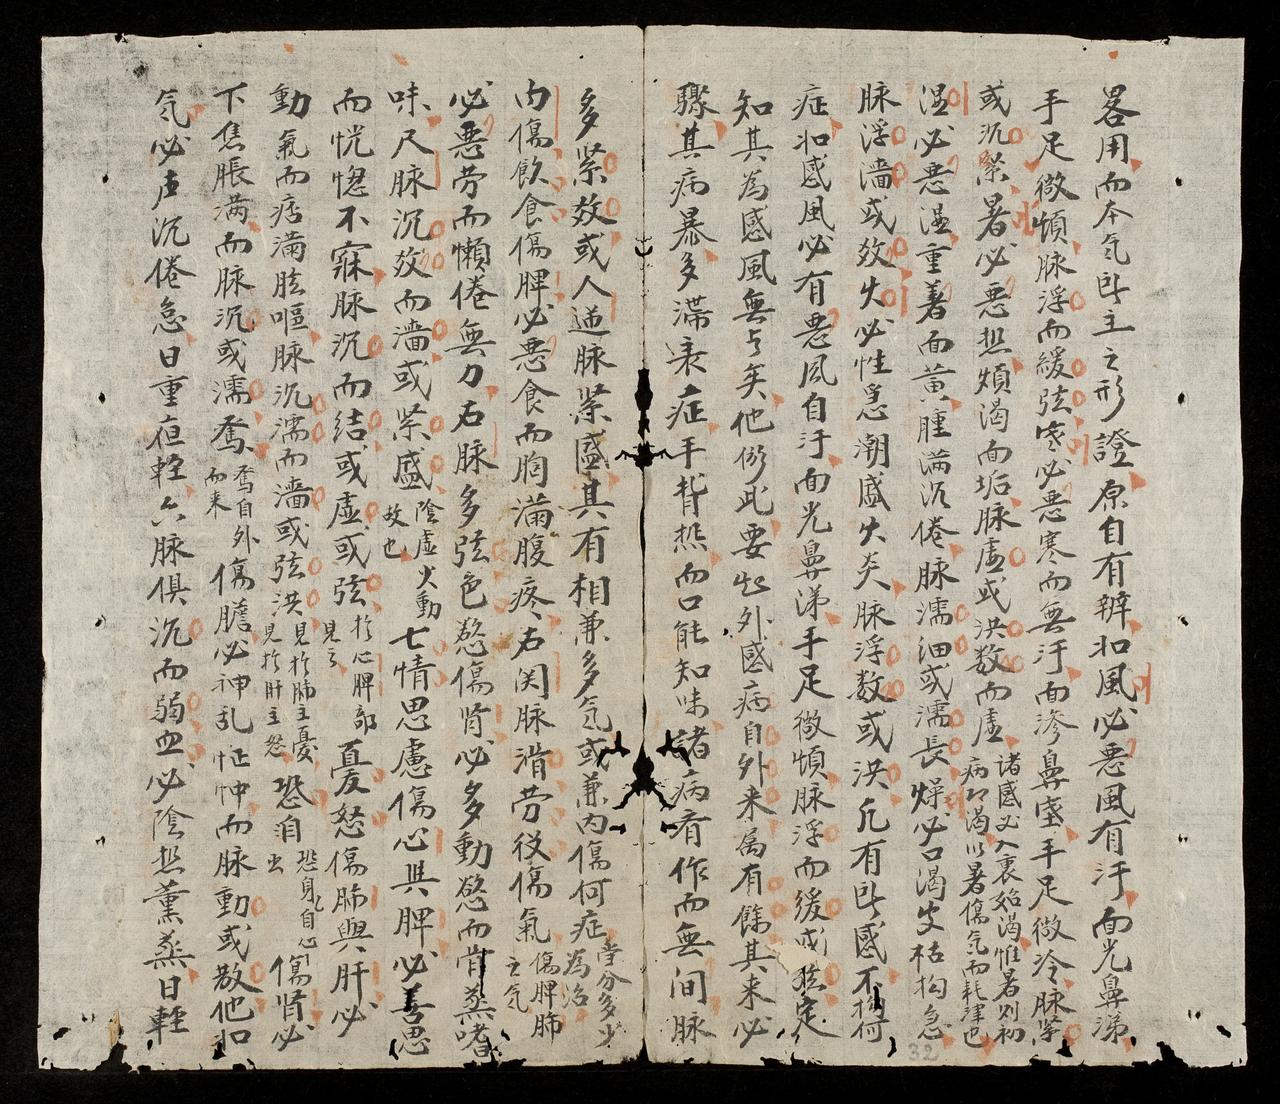 畧用而本气㫁主之形證原自有辨如風必悪風有汗面光鼻涕
手足微煩脉浮而緩弦寒必悪寒而無汗面渗鼻塞手足微冷脉緊
或沉緊暑必悪熱煩渴面垢脉虚或洪数而虚諸感必入裏始渴惟暑则初病即渴以暑傷气而耗津也
湿必悪湿重著面黄腫满沉倦脉濡細或濡長燥必口渴皮枯拘急
脉浮濇或效火必性急潮盛火炎脉浮数或洪凢有㫁感不拘何
症如感風必有悪風自汗面光鼻涕手足微煩脉浮而緩或弦定
知其為感風無与矣他倣此要知外感病自外来属有餘其来必
驟其病暴多滞裏症手背熱而口能知味諸病有作而無间脉
多紧效或人迎脉紧盛其有相兼多气或兼内傷何症當分多少為治
内傷飲食傷脾必悪食而胸满腹疼右関脉滑劳役傷氣傷脾肺之气
必悪劳而懶倦無力右脉多弦色慾傷肾必多動慾而骨蒸嗜
味尺脉沉效而濇或紧盛陰虚火動故也七情思慮傷心與脾必善思
而恍惚不寐脉沉而结或虚或弦於心脾部見之憂怒傷肺與肝必
動氣而痞满胘嘔脉沉濡而濇或弦洪見於肺主憂見於肝主怒恐自出恐身自心傷肾必
下焦脹满而脉沉或濡驚驚自外而来傷膽必神乱怔忡而脉動或散他如
気必声沉倦怠日重夜輕六脉俱沉而弱血必陰热薫蒸日輕
32